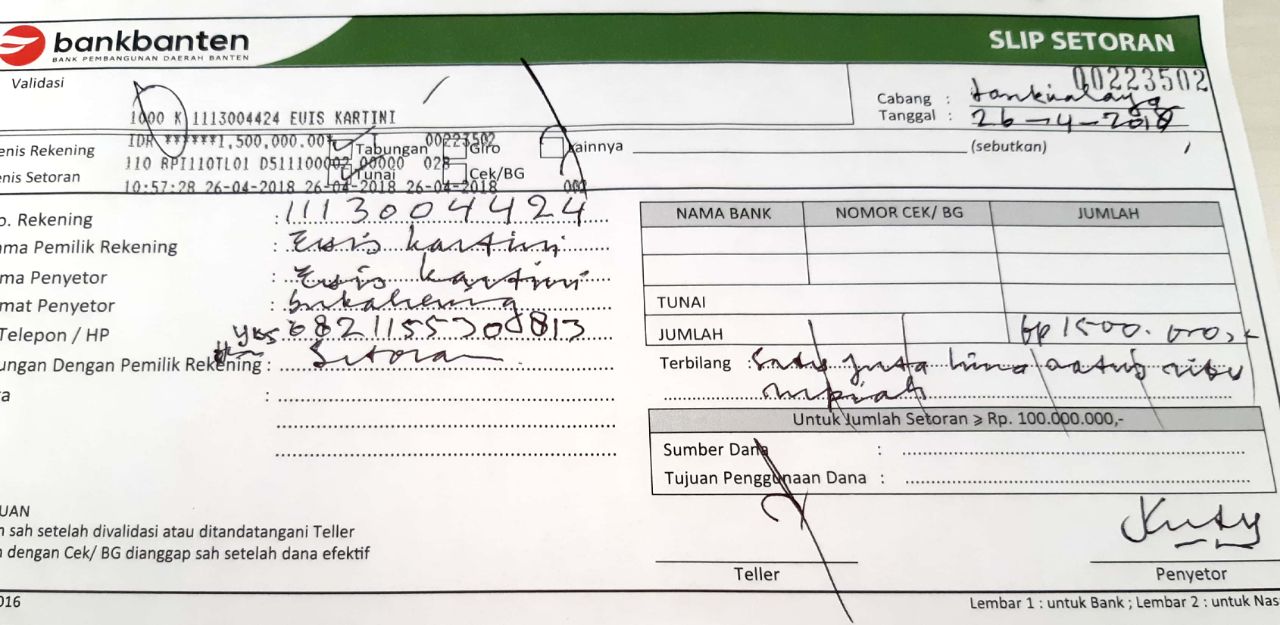 bankbanten
BANK PEMBANGUNAN DAERAH BANTEN
SLIP SETORAN
00223502
Validasi
Cabang :
Tanggal : 26-4-2018
1000 K 1113004424 EUIS KARTINI
IDR ******1,500,000.00* 00223502
enis Rekening Tabungan Giro Lainnya (sebutkan)
110 RPI110TL01 D511100002 00000 028
enis Setoran Tunai Cek/BG
10:57:28 26-04-2018 26-04-2018 26-04-2018 001
o. Rekening : 1113004424
ma Pemilik Rekening : Euis kartini
ma Penyetor : Euis kartini
mat Penyetor :
Telepon / HP
ungan Dengan Pemilik Rekening : Setoran
a :
NAMA BANK NOMOR CEK/ BG JUMLAH
TUNAI
JUMLAH Rp 1500.000,-
Terbilang : Satu juta lima ratus ribu
rupiah
Untuk Jumlah Setoran ⩾ Rp. 100.000.000,-
Sumber Dana :
Tujuan Penggunaan Dana :
UAN
n sah setelah divalidasi atau ditandatangani Teller
n dengan Cek/ BG dianggap sah setelah dana efektif
Teller
Penyetor
016
Lembar 1 : untuk Bank ; Lembar 2 : untuk Nas